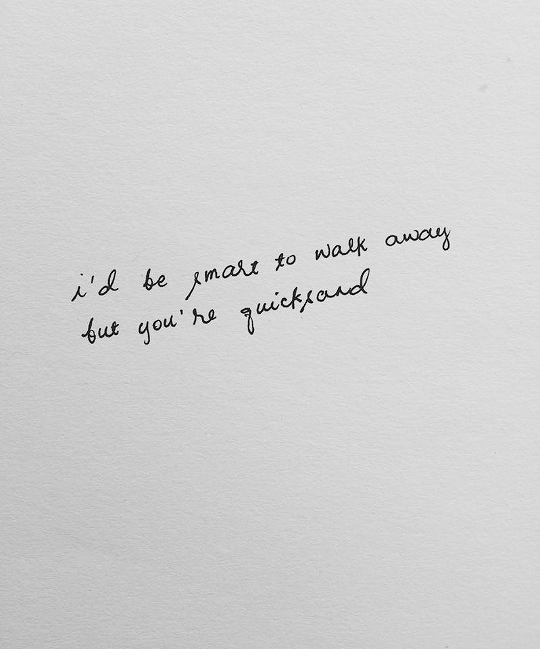 i'd be smart to walk away
but you're quicksand